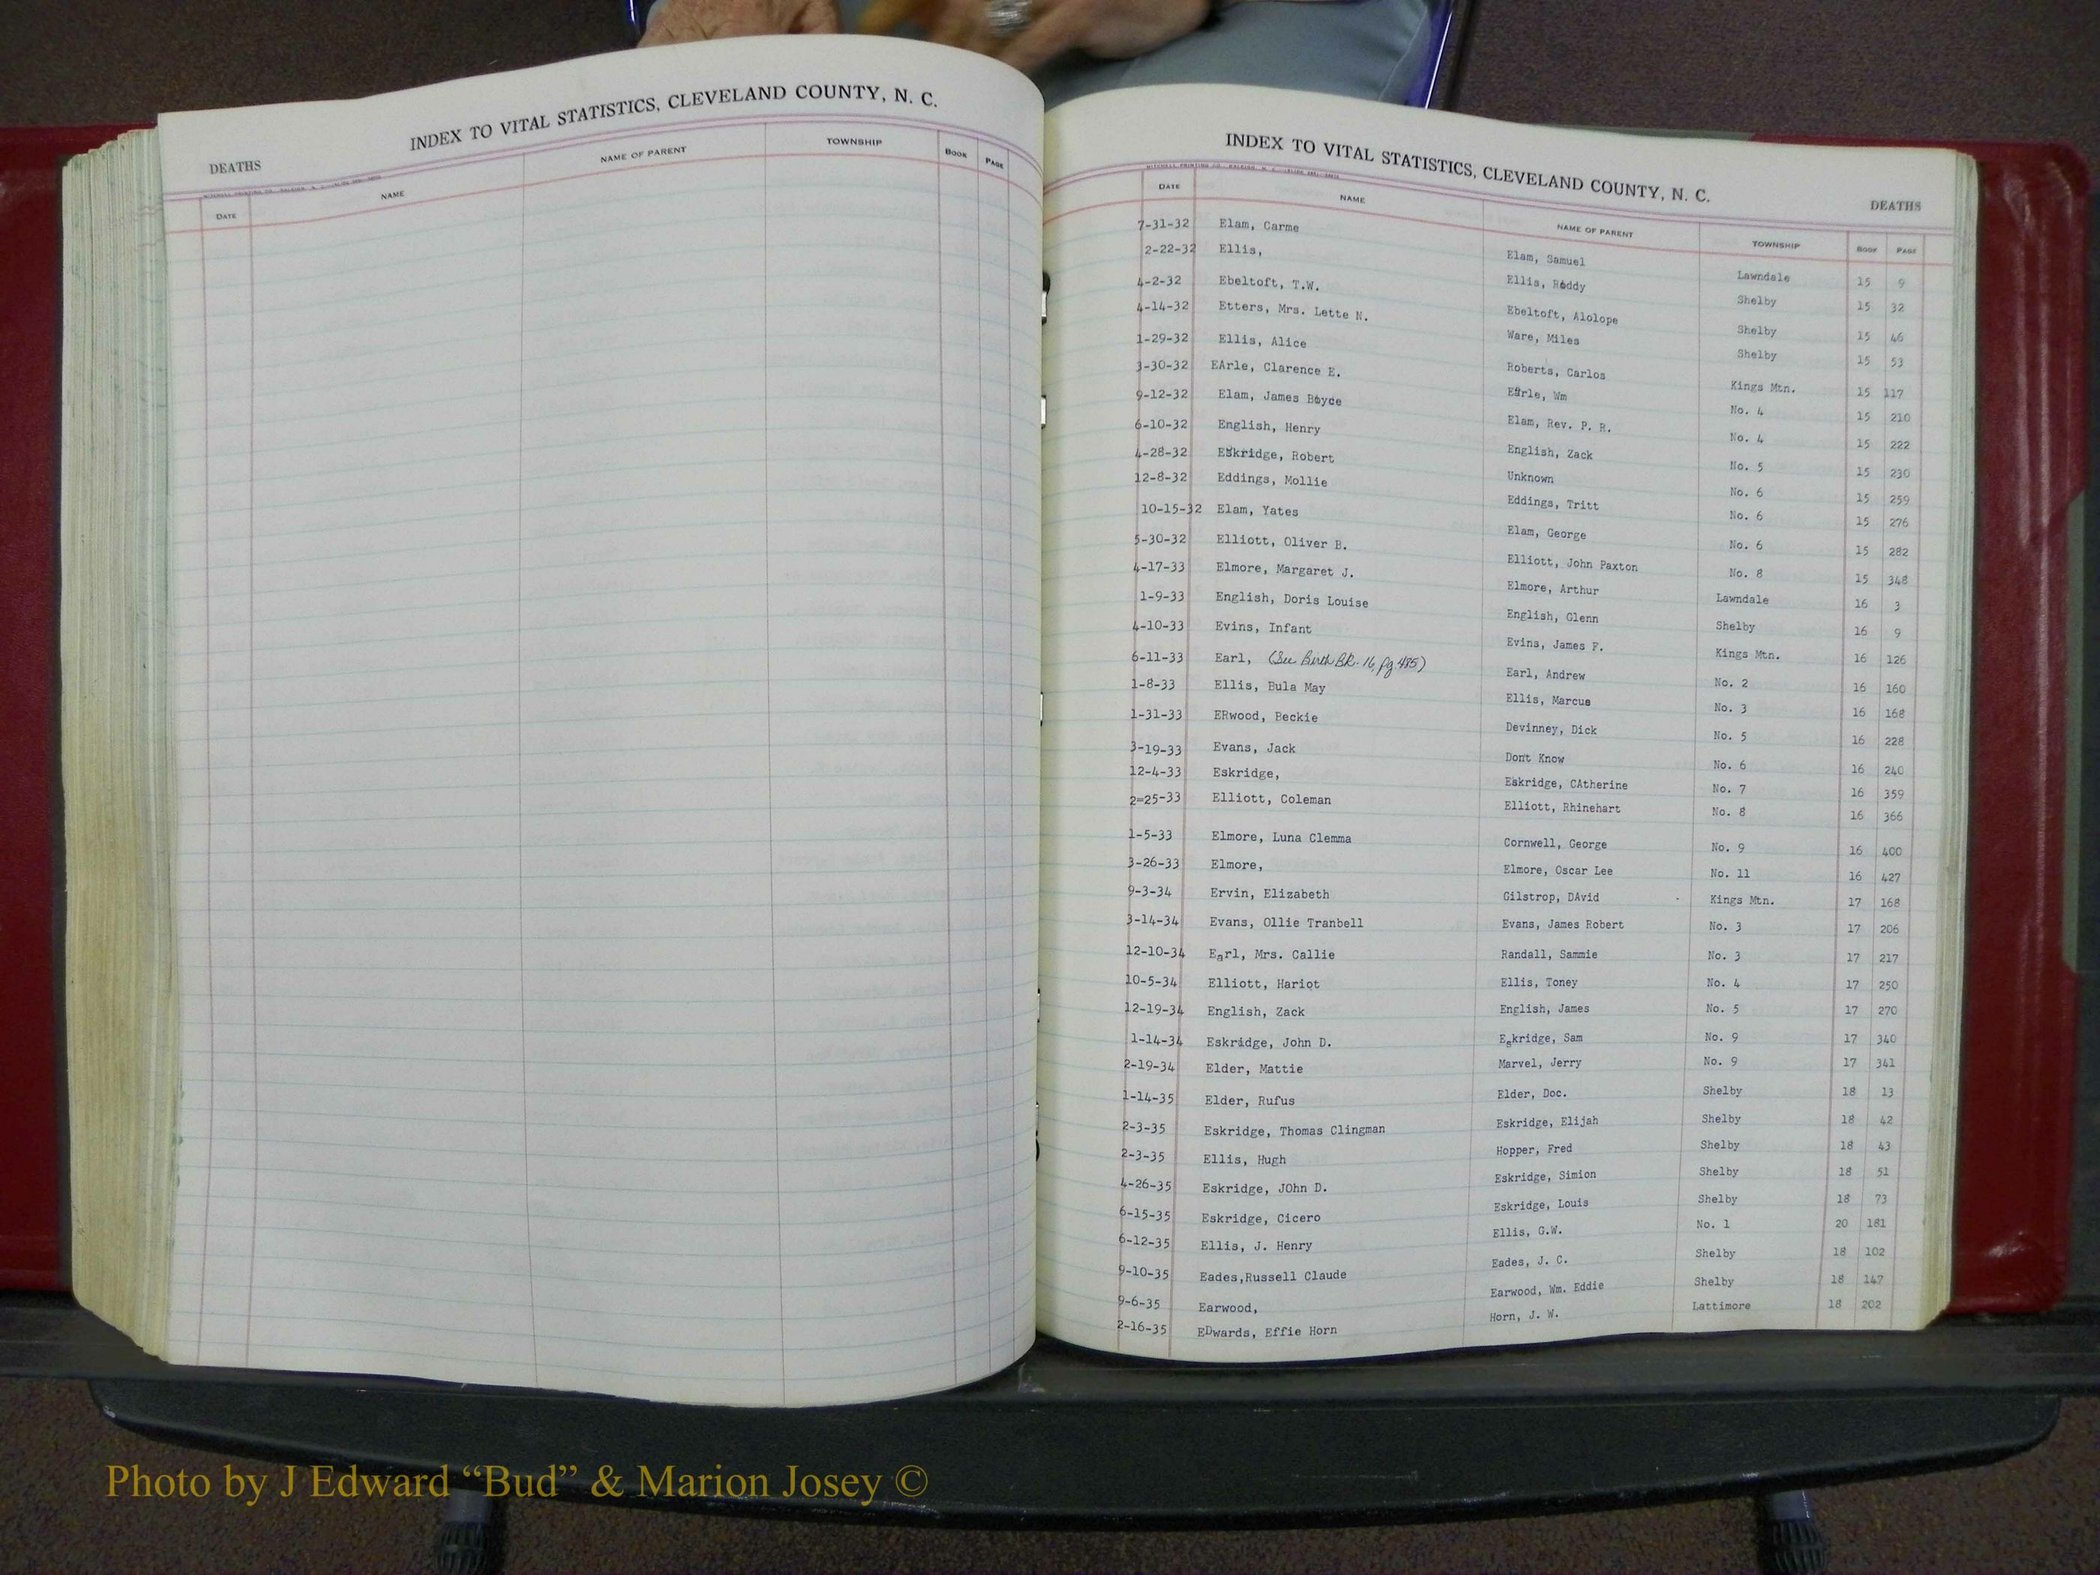 INDEX TO VITAL STATISTICS, CLEVELAND COUNTY, N. C.
DEATHS
DATE NAME NAME OF PARENT TOWNSHIP BOOK PAGE
INDEX TO VITAL STATISTICS, CLEVELAND COUNTY, N. C.
DEATHS
DATE NAME NAME OF PARENT TOWNSHIP BOOK PAGE
7-31-32 Elam, Carme Elam, Samuel Lawndale 15 9
2-22-32 Ellis, Ellis, Roddy Shelby 15 32
4-2-32 Ebeltoft, T.W. Ebeltoft, Alolope Shelby 15 46
4-14-32 Etters, Mrs. Lette N. Ware, Miles Shelby 15 53
1-29-32 Ellis, Alice Roberts, Carlos Kings Mtn. 15 117
3-30-32 EArle, Clarence E. Earle, Wm No. 4 15 210
9-12-32 Elam, James Boyce Elam, Rev. P. R. No. 4 15 222
6-10-32 English, Henry English, Zack No. 5 15 230
4-28-32 Eskridge, Robert Unknown No. 6 15 259
12-8-32 Eddings, Mollie Eddings, Tritt No. 6 15 276
10-15-32 Elam, Yates Elam, George No. 6 15 282
5-30-32 Elliott, Oliver B. Elliott, John Paxton No. 8 15 348
4-17-33 Elmore, Margaret J. Elmore, Arthur Lawndale 16 3
1-9-33 English, Doris Louise English, Glenn Shelby 16 9
4-10-33 Evins, Infant Evins, James F. Kings Mtn. 16 126
6-11-33 Earl, (See Birth BK. 16, pg 485) Earl, Andrew No. 2 16 160
1-8-33 Ellis, Bula May Ellis, Marcus No. 3 16 168
1-31-33 ERwood, Beckie Devinney, Dick No. 5 16 228
3-19-33 Evans, Jack Dont Know No. 6 16 240
12-4-33 Eskridge, Eskridge, CAtherine No. 7 16 359
2=25-33 Elliott, Coleman Elliott, Rhinehart No. 8 16 366
1-5-33 Elmore, Luna Clemma Cornwell, George No. 9 16 400
3-26-33 Elmore, Elmore, Oscar Lee No. 11 16 427
9-3-34 Ervin, Elizabeth Gilstrop, DAvid Kings Mtn. 17 168
3-14-34 Evans, Ollie Tranbell Evans, James Robert No. 3 17 206
12-10-34 Earl, Mrs. Callie Randall, Sammie No. 3 17 217
10-5-34 Elliott, Hariot Ellis, Toney No. 4 17 250
12-19-34 English, Zack English, James No. 5 17 270
1-14-34 Eskridge, John D. Eskridge, Sam No. 9 17 340
2-19-34 Elder, Mattie Marvel, Jerry No. 9 17 341
1-14-35 Elder, Rufus Elder, Doc. Shelby 18 13
2-3-35 Eskridge, Thomas Clingman Eskridge, Elijah Shelby 18 42
2-3-35 Ellis, Hugh Hopper, Fred Shelby 18 43
4-26-35 Eskridge, JOhn D. Eskridge, Simion Shelby 18 51
6-15-35 Eskridge, Cicero Eskridge, Louis Shelby 18 73
6-12-35 Ellis, J. Henry Ellis, G.W. No. 1 20 181
9-10-35 Eades,Russell Claude Eades, J. C. Shelby 18 102
9-6-35 Earwood, Earwood, Wm. Eddie Shelby 18 147
2-16-35 EDwards, Effie Horn Horn, J. W. Lattimore 18 202
Photo by J Edward “Bud” & Marion Josey ©